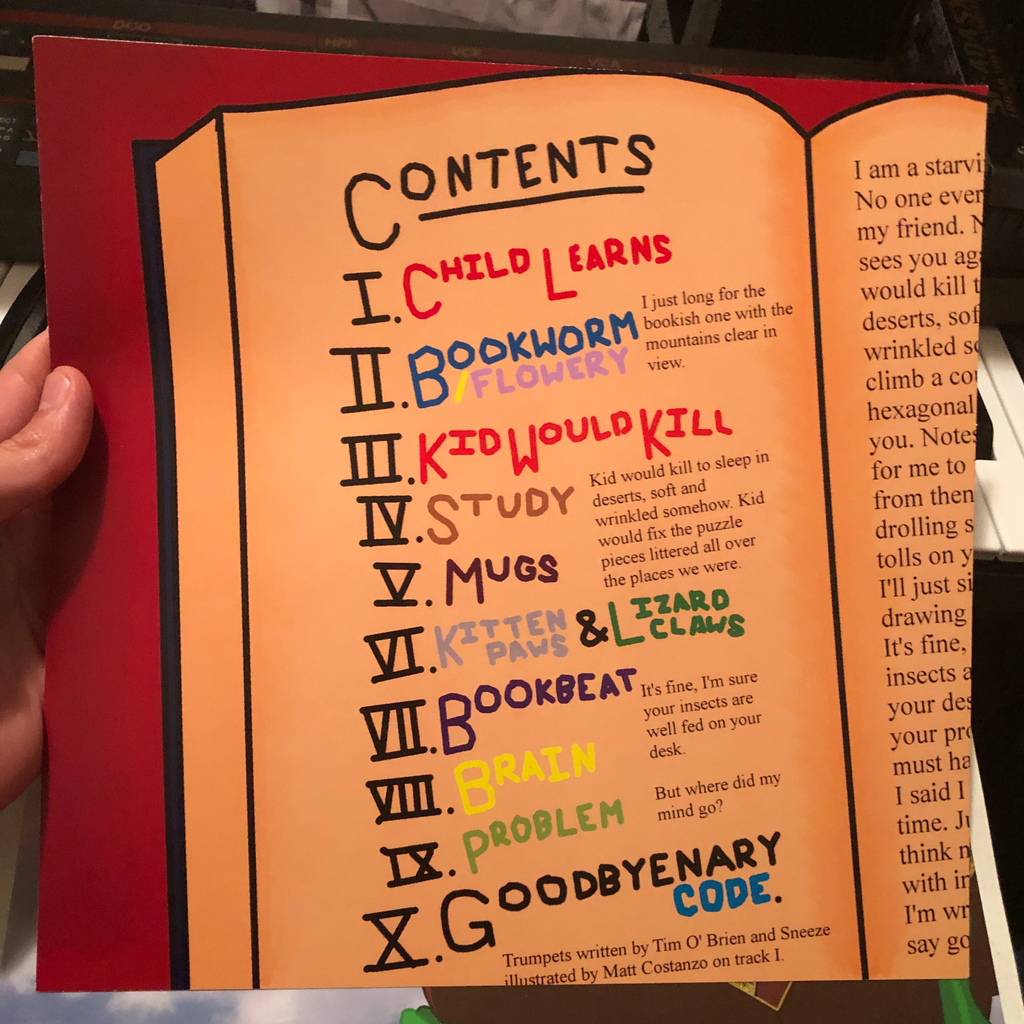 DCO
HPF
VCF
VCA
ENV
CONTENTS
I. CHILD LEARNS
II. BOOKWORM
/FLOWERY
I just long for the
bookish one with the
mountains clear in
view.
III. KID WOULD KILL
IV. STUDY
Kid would kill to sleep in
deserts, soft and
wrinkled somehow. Kid
would fix the puzzle
pieces littered all over
the places we were.
V. MUGS
VI. KITTEN PAWS & LIZARD CLAWS
VII. BOOKBEAT
It's fine, I'm sure
your insects are
well fed on your
desk.
VIII. BRAIN
IX. PROBLEM
But where did my
mind go?
X. GOODBYENARY
CODE.
Trumpets written by Tim O' Brien and Sneeze
illustrated by Matt Costanzo on track I.
I am a starvi
No one ever
my friend. N
sees you ag
would kill t
deserts, sof
wrinkled so
climb a co
hexagonal
you. Notes
for me to
from then
drolling s
tolls on y
I'll just si
drawing
It's fine,
insects a
your des
your pro
must ha
I said I
time. Ju
think n
with in
I'm wr
say go